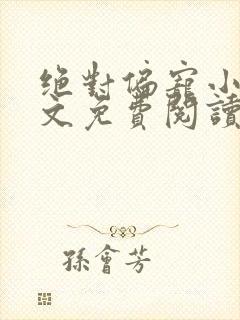 絕對偏寵小
文免費閱讀
孫會芳